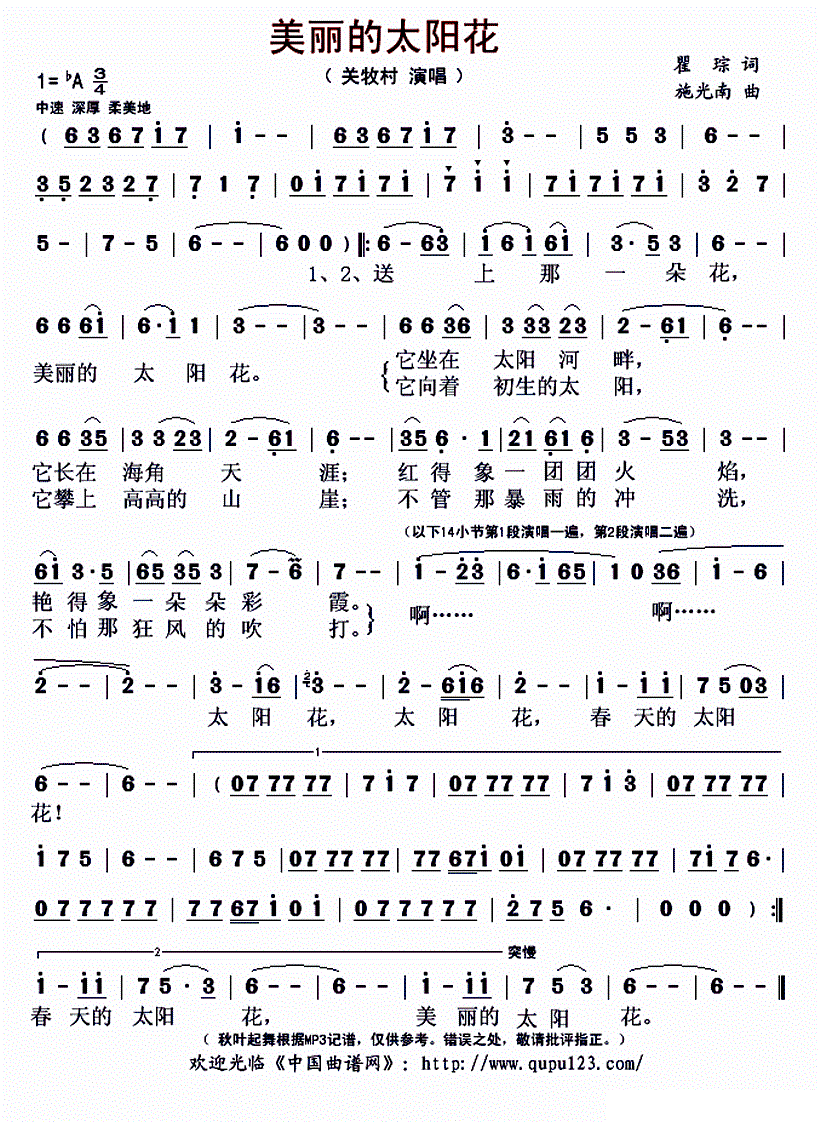 美丽的太阳花
（ 关牧村 演唱 ）
瞿 琮 词
施光南 曲
1= ♭A 3/4
中速 深厚 柔美地
( 6 3 6 7 i 7 | i - - | 6 3 6 7 i 7 | 3 - - | 5 5 3 | 6 - - |
3 5 2 3 2 7 | 7 1 7 | 0 i 7 i 7 i | 7 i i | 7 i 7 i 7 i | 3 2 7 |
5 - | 7 - 5 | 6 - - | 6 0 0 ) ‖: 6 - 6 3 | i 6 i 6 i | 3 · 5 3 | 6 - - |
1、2、送 上 那 一 朵 花，
6 6 6 i | 6 · i 1 | 3 - - | 3 - - | 6 6 3 6 | 3 3 3 2 3 | 2 - 6 1 | 6 - - |
美丽的 太 阳 花。 它坐在 太阳 河 畔，
它向着 初生的太 阳，
6 6 3 5 | 3 3 2 3 | 2 - 6 1 | 6 - - | 3 5 6 · 1 | 2 1 6 1 6 | 3 - 5 3 | 3 - - |
它长在 海角 天 涯； 红得象一团团火 焰，
它攀上 高高的 山 崖； 不管那暴雨的冲 洗，
（以下14小节第1段演唱一遍，第2段演唱二遍）
6 i 3 · 5 | 6 5 3 5 3 | 7 - 6 | 7 - - | i - 2 3 | 6 · i 6 5 | 1 0 3 6 | i - 6 |
艳得象一朵朵彩 霞。 啊…… 啊……
不怕那狂风的吹 打。
2 - - | 2 - - | 3 - i 6 | 2 3 - - | 2 - 6 i 6 | 2 - - | i - i i | 7 5 0 3 |
太 阳 花， 太 阳 花， 春 天的 太阳
1
6 - - | 6 - - | ( 0 7 7 7 7 7 | 7 i 7 | 0 7 7 7 7 7 | 7 i 3 | 0 7 7 7 7 7 |
花！
i 7 5 | 6 - - | 6 7 5 | 0 7 7 7 7 7 | 7 7 6 7 i 0 i | 0 7 7 7 7 7 | 7 i 7 6 · |
0 7 7 7 7 7 | 7 7 6 7 i 0 i | 0 7 7 7 7 7 | 2 7 5 6 · | 0 0 0 ) :‖
2 突慢
i - i i | 7 5 · 3 | 6 - - | 6 - - | i - i i | 7 5 3 | 6 - - | 6 - - ‖
春 天的 太阳 花， 美 丽的 太阳 花。
（ 秋叶起舞根据MP3记谱，仅供参考。错误之处，敬请批评指正。）
欢迎光临《中国曲谱网》：http://www.qupu123.com/